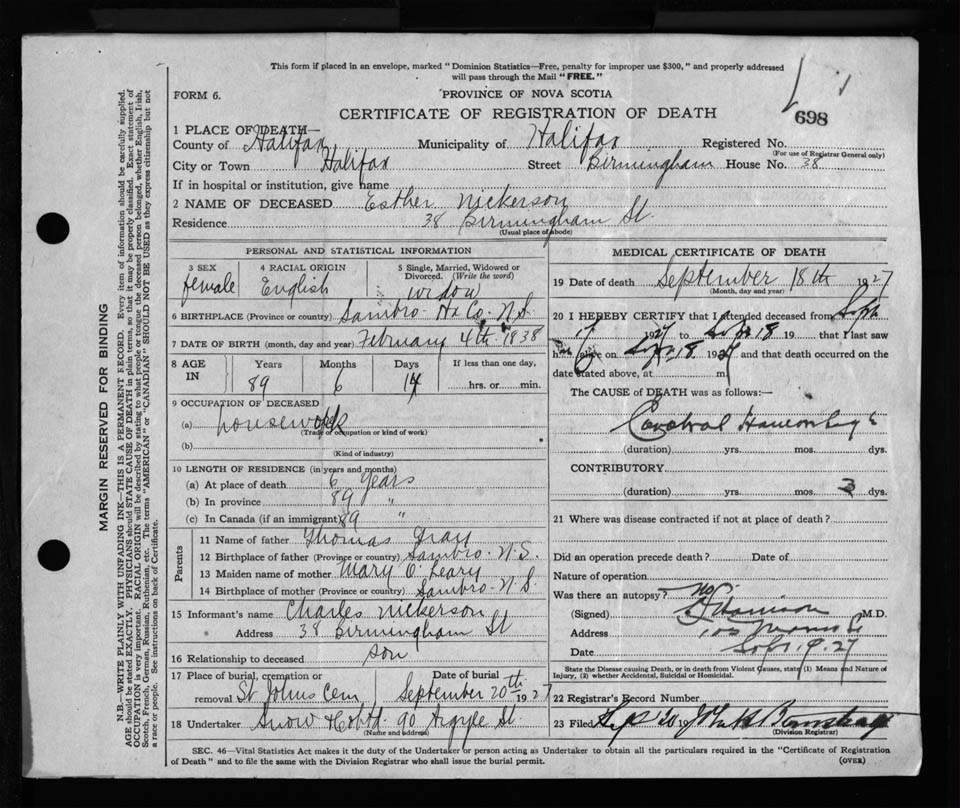 This form if placed in an envelope, marked "Dominion Statistics—Free, penalty for improper use $300," and properly addressed
will pass through the Mail "FREE."
FORM 6.
PROVINCE OF NOVA SCOTIA
CERTIFICATE OF REGISTRATION OF DEATH
698
1 PLACE OF DEATH—
County of Halifax Municipality of Halifax Registered No.
(For use of Registrar General only)
City or Town Halifax Street Birmingham House No. 38
If in hospital or institution, give name
2 NAME OF DECEASED Esther Nickerson
Residence 38 Birmingham St.
(Usual place of abode)
PERSONAL AND STATISTICAL INFORMATION
3 SEX 4 RACIAL ORIGIN 5 Single, Married, Widowed or
Divorced. (Write the word)
female English widow
6 BIRTHPLACE (Province or country) Sambro Hx Co. N.S.
7 DATE OF BIRTH (month, day and year) February 4th 1838
8 AGE IN Years Months Days If less than one day,
89 6 14 hrs. or min.
9 OCCUPATION OF DECEASED
(a) housework
(Trade or occupation or kind of work)
(b)
(Kind of industry)
10 LENGTH OF RESIDENCE (in years and months)
(a) At place of death 6 years
(b) In province 89 "
(c) In Canada (if an immigrant) 89 "
Parents
11 Name of father Thomas Gray
12 Birthplace of father (Province or country) Sambro N.S.
13 Maiden name of mother Mary O'Leary
14 Birthplace of mother (Province or country) Sambro N.S.
15 Informant's name Charles Nickerson
Address 38 Birmingham St
16 Relationship to deceased son
17 Place of burial, cremation or removal St Johns Cem Date of burial September 20th 1927
18 Undertaker Snow & Co Ltd. 90 Argyle St.
(Name and address)
MEDICAL CERTIFICATE OF DEATH
19 Date of death September 18th 1927
(Month, day and year)
20 I HEREBY CERTIFY that I attended deceased from Sept
1927 to Sept 18 19 that I last saw
h alive on Sept 18 1927 and that death occurred on the
date stated above, at m.
The CAUSE of DEATH was as follows:—
Cerebral Hemorrhage
(duration) yrs. mos. dys.
CONTRIBUTORY
(duration) yrs. mos. 3 dys.
21 Where was disease contracted if not at place of death?
Did an operation precede death? Date of
Nature of operation
Was there an autopsy? No
(Signed) M.D.
Address
Date Sept 19. 27
State the Disease causing Death, or in death from Violent Causes, state (1) Means and Nature of
Injury, (2) whether Accidental, Suicidal or Homicidal.
22 Registrar's Record Number
23 Filed Sep 20 19
(Division Registrar)
SEC. 46—Vital Statistics Act makes it the duty of the Undertaker or person acting as Undertaker to obtain all the particulars required in the "Certificate of Registration
of Death" and to file the same with the Division Registrar who shall issue the burial permit.
(OVER)
MARGIN RESERVED FOR BINDING
N.B.—WRITE PLAINLY WITH UNFADING INK—THIS IS A PERMANENT RECORD. Every item of information should be carefully supplied.
AGE should be stated EXACTLY. PHYSICIANS should STATE CAUSE OF DEATH in plain terms, so that it may be properly classified. Exact statement of
OCCUPATION is very important. RACIAL ORIGIN will be described by stating to what people or tongue the deceased person belonged, whether English, Irish,
Scotch, French, German, Russian, Ruthenian, etc. The terms "AMERICAN" or "CANADIAN" SHOULD NOT BE USED as they express citizenship but not
a race or people. See instructions on back of Certificate.